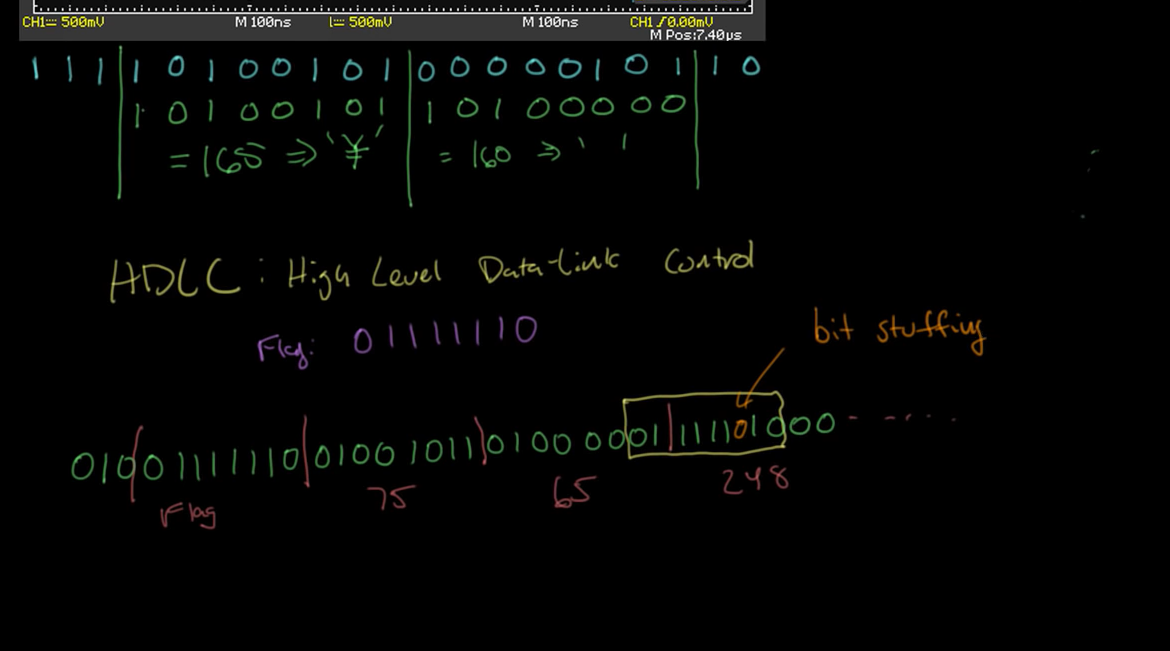 CH1⎓ 500mV M 100ns l= 500mV M 100ns CH1 ƒ0.00mV
M Pos:7.40µs
1 1 1 | 1 0 1 0 0 1 0 1 | 0 0 0 0 0 1 0 1 | 1 0
1 0 1 0 0 1 0 1 | 1 0 1 0 0 0 0 0
= 165 ⇒ '¥' = 160 ⇒ ' '
HDLC : High Level Data-Link Control
Flag: 01111110
bit stuffing
010|01111110|01001011|01000001|111101000 - - - - -
Flag 75 65 248